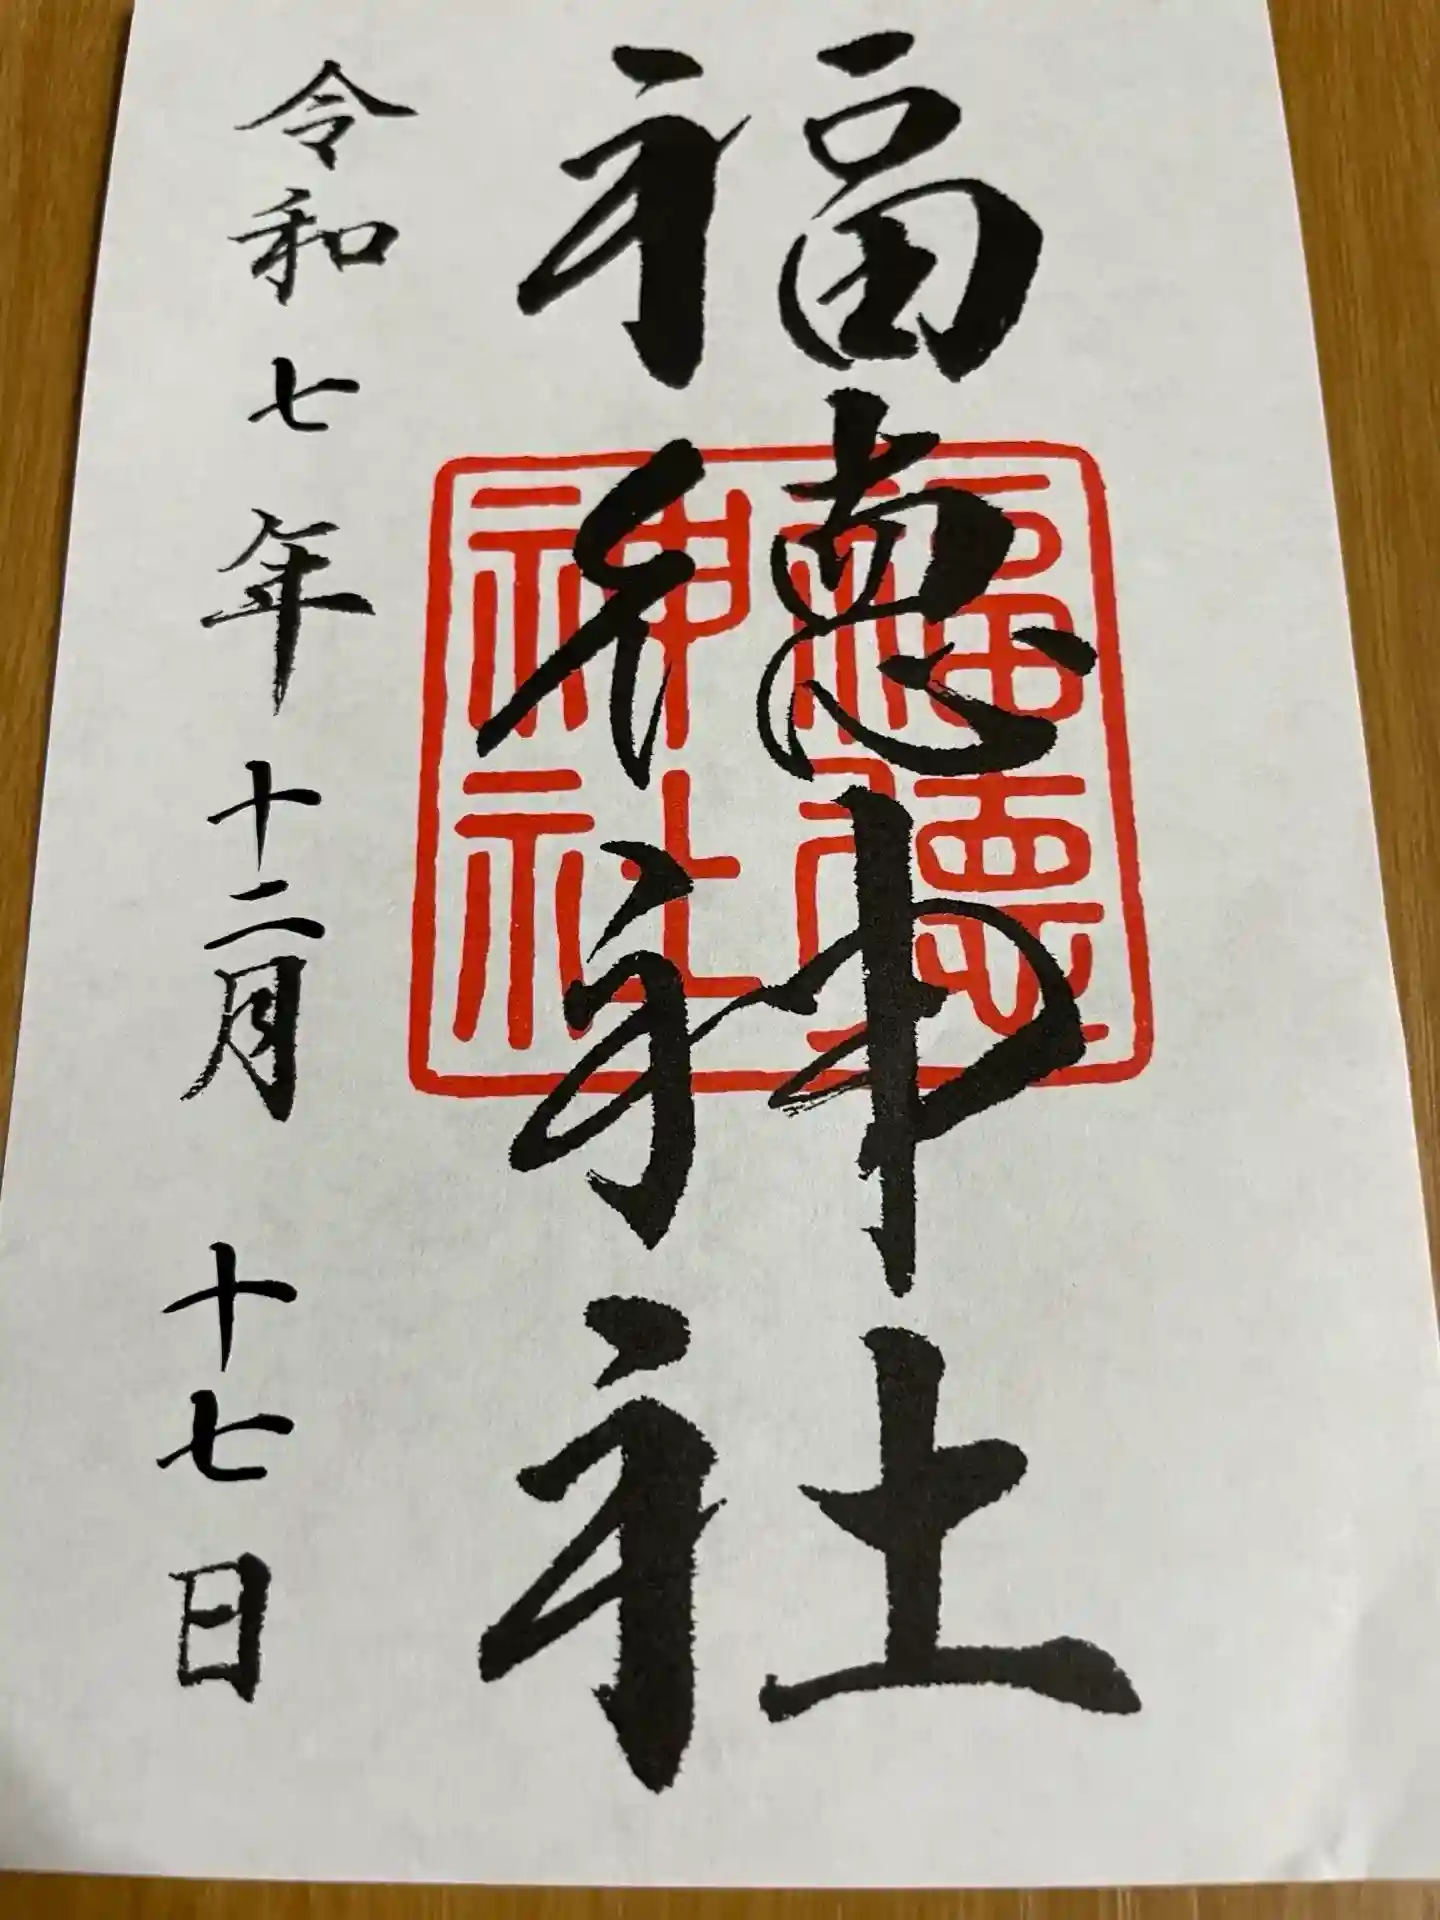 福徳神社
福德神社
令和七年十二月十七日